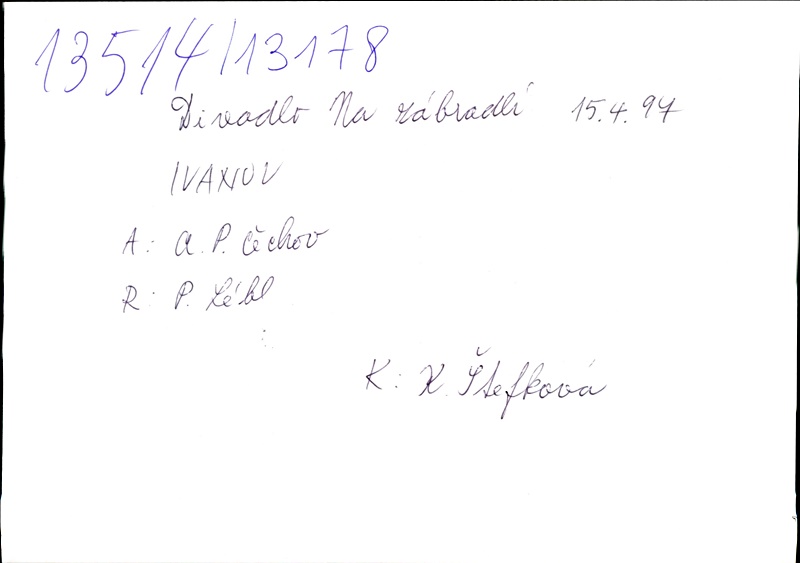 13514/13178
Divadlo Na zábradlí 15.4.97
IVANOV
A: A. P. Čechov
R: P. Lébl
K: K. Štefková